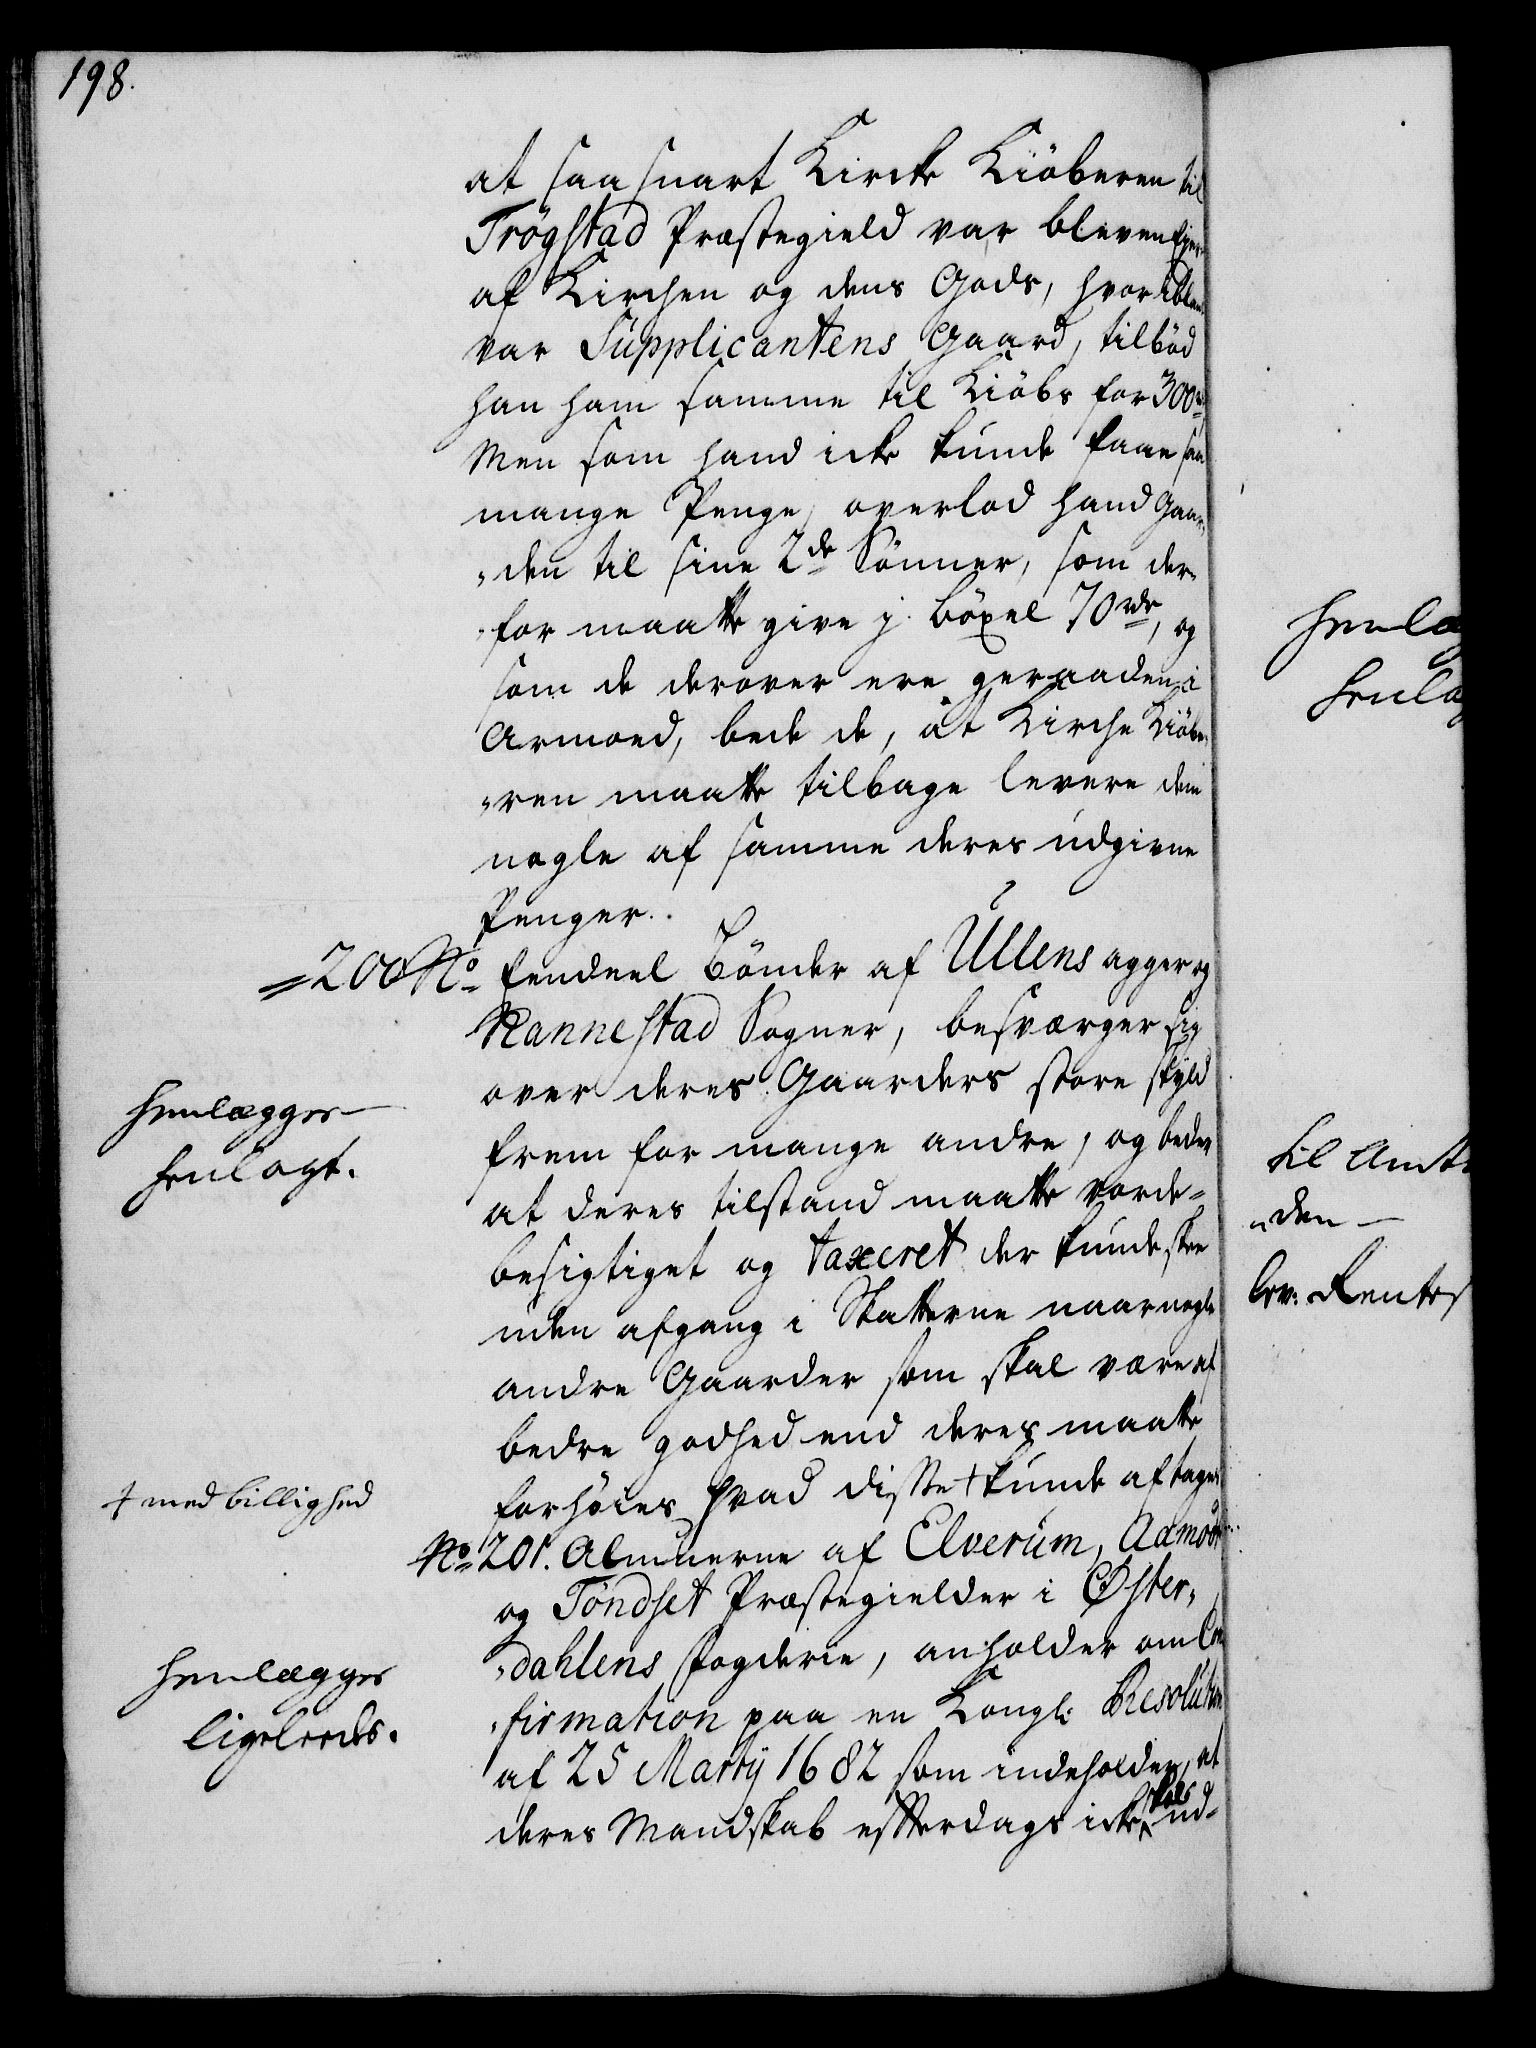 198.
at saa snart Kircke Kiöberen til
Trögstad Præstegield var bleven Ejer
af Kirchen og dens Gods, hvor iblant
var Supplicantens Gaard, tilböd
han ham samme til Kiöbs for 300 rd
Men som hand icke kunde faae saa
mange Penge, overlod hand Gaar,,
,,den til sine 2de Sönner, som der,,
,,for maatte give j Böxel 70 rdr, og
som de derover ere geraaden i
Armoed, bede de, at Kirche Kiöbe,,
,,ren maatte tilbage levere dem
nogle af samme deres udgivne
Penger.
=200 No Eendeel Bönder af Ullensagger og
Nannestad Sogner, besværger sig
over deres Gaarders store skyld
Henlægges
frem for mange andre, og beder
henlagt.
at deres tilstand maatte vorde=
besigtiget og taxeret der kunde skee
uden afgang i Skatterne naar nogle
andre Gaarder som skal være af
bedre godhed end deres maatte
† med billighed
forhöies hvad disse † kunde aftages
No 201. Almuerne af Elverum, Aamodt
og Töndset Præstegielder i Öster,,
,,dahlens Fogderie, anholder om Con
Henlægges
,,firmation paa en Kongl: Resolution
ligeleedes.
af 25 Martij 1682 som indeholder, at
deres Mandskab efterdags icke skal ud-
Henlæg
henlag
til Amt
,,den
lev: Rentes